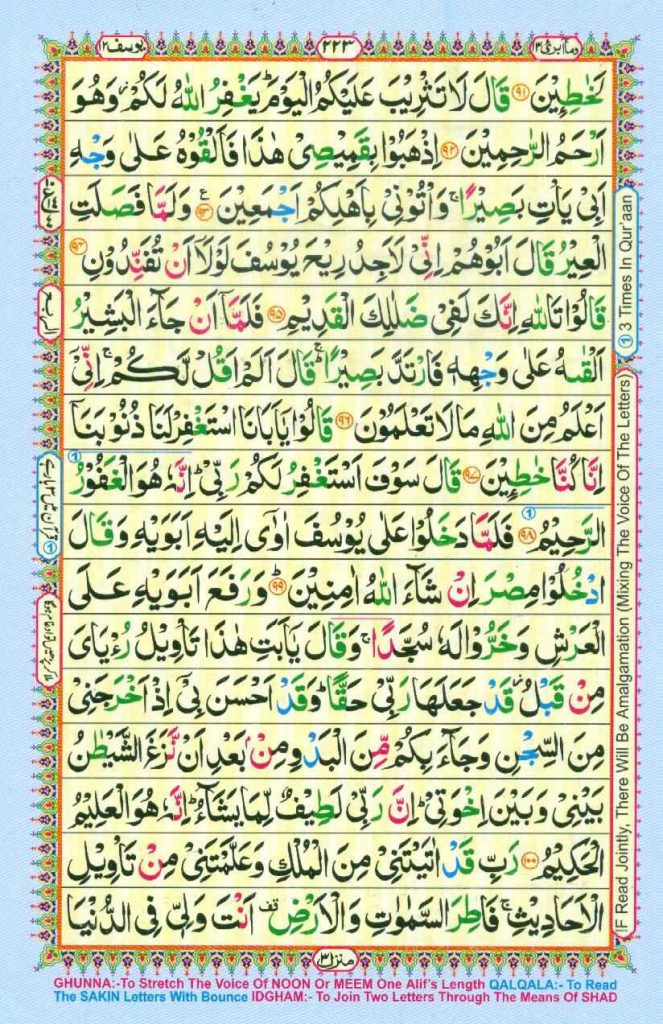 يوسف ١٢
٢٢٣
وما ابرئ ١٣
لَخٰطِـِٕيْنَ ٩١ قَالَ لَا تَثْرِيْبَ عَلَيْكُمُ الْيَوْمَ ؕ يَغْفِرُ اللّٰهُ لَكُمْ ؗ وَهُوَ
اَرْحَمُ الرّٰحِمِيْنَ ٩٢ اِذْهَبُوْا بِقَمِيْصِيْ هٰذَا فَاَلْقُوْهُ عَلٰى وَجْهِ
اَبِيْ يَاْتِ بَصِيْرًا ۚ وَاْتُوْنِيْ بِاَهْلِكُمْ اَجْمَعِيْنَ ٩٣ ع وَلَمَّا فَصَلَتِ
الْعِيْرُ قَالَ اَبُوْهُمْ اِنِّيْ لَاَجِدُ رِيْحَ يُوْسُفَ لَوْلَاۤ اَنْ تُفَنِّدُوْنِ ٩٤
قَالُوْا تَاللّٰهِ اِنَّكَ لَفِيْ ضَلٰلِكَ الْقَدِيْمِ ٩٥ فَلَمَّاۤ اَنْ جَآءَ الْبَشِيْرُ
اَلْقٰىهُ عَلٰى وَجْهِهٖ فَارْتَدَّ بَصِيْرًا ۚ قَالَ اَلَمْ اَقُلْ لَّكُمْ ۚ اِنِّيْۤ
اَعْلَمُ مِنَ اللّٰهِ مَا لَا تَعْلَمُوْنَ ٩٦ قَالُوْا يٰۤاَبَانَا اسْتَغْفِرْ لَنَا ذُنُوْبَنَاۤ
اِنَّا كُنَّا خٰطِـِٕيْنَ ٩٧ قَالَ سَوْفَ اَسْتَغْفِرُ لَكُمْ رَبِّيْ ؕ اِنَّهٗ هُوَ الْغَفُوْرُ
الرَّحِيْمُ ٩٨ فَلَمَّا دَخَلُوْا عَلٰى يُوْسُفَ اٰوٰۤى اِلَيْهِ اَبَوَيْهِ وَقَالَ
ادْخُلُوْا مِصْرَ اِنْ شَآءَ اللّٰهُ اٰمِنِيْنَ ؕ ٩٩ وَرَفَعَ اَبَوَيْهِ عَلَى
الْعَرْشِ وَخَرُّوْا لَهٗ سُجَّدًا ۚ وَقَالَ يٰۤاَبَتِ هٰذَا تَاْوِيْلُ رُءْيَايَ
مِنْ قَبْلُ ؗ قَدْ جَعَلَهَا رَبِّيْ حَقًّا ؕ وَقَدْ اَحْسَنَ بِيْۤ اِذْ اَخْرَجَنِيْ
مِنَ السِّجْنِ وَجَآءَ بِكُمْ مِّنَ الْبَدْوِ مِنْۢ بَعْدِ اَنْ نَّزَغَ الشَّيْطٰنُ
بَيْنِيْ وَبَيْنَ اِخْوَتِيْ ؕ اِنَّ رَبِّيْ لَطِيْفٌ لِّمَا يَشَآءُ ؕ اِنَّهٗ هُوَ الْعَلِيْمُ
الْحَكِيْمُ ١٠٠ رَبِّ قَدْ اٰتَيْتَنِيْ مِنَ الْمُلْكِ وَعَلَّمْتَنِيْ مِنْ تَاْوِيْلِ
الْاَحَادِيْثِ ۚ فَاطِرَ السَّمٰوٰتِ وَالْاَرْضِ قف اَنْتَ وَلِيّٖ فِي الدُّنْيَا
منزل ٣
① 3 Times In Qur'aan
IF Read Jointly, There Will Be Amalgamation (Mixing The Voice Of The Letters)
GHUNNA:-To Stretch The Voice Of NOON Or MEEM One Alif's Length QALQALA:- To Read
The SAKIN Letters With Bounce IDGHAM:- To Join Two Letters Through The Means Of SHAD